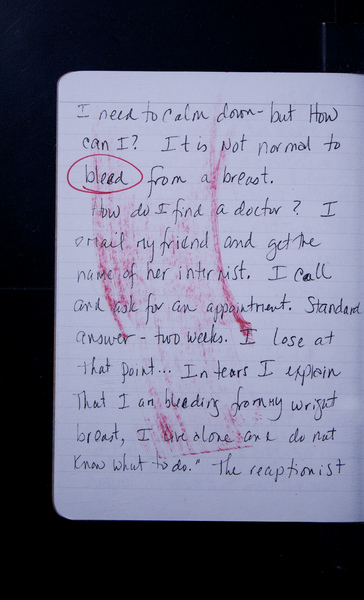 I need to calm down - but How
can I? It is Not normal to
bleed from a breast.
How do I find a doctor? I
email my friend and get the
name of her internist. I call
and ask for an appointment. Standard
answer - two weeks. I lose at
that point... In tears I explain
That I am bleeding from my wright
breast, I live alone and do not
know what to do." The reaptionist